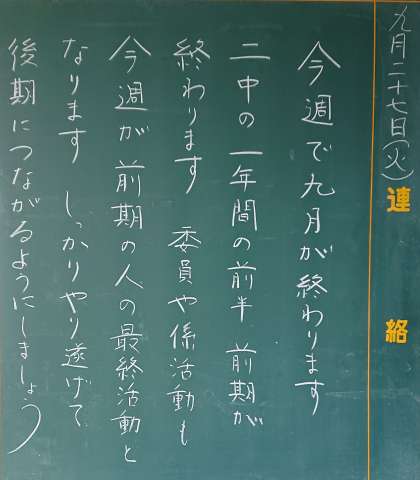 九月二十七日(火)
連絡
今週で九月が終わります
二中の一年間の前半 前期が
終わります 委員や係活動も
今週が前期の人の最終活動と
なります しっかりやり遂げて
後期につながるようにしましょう